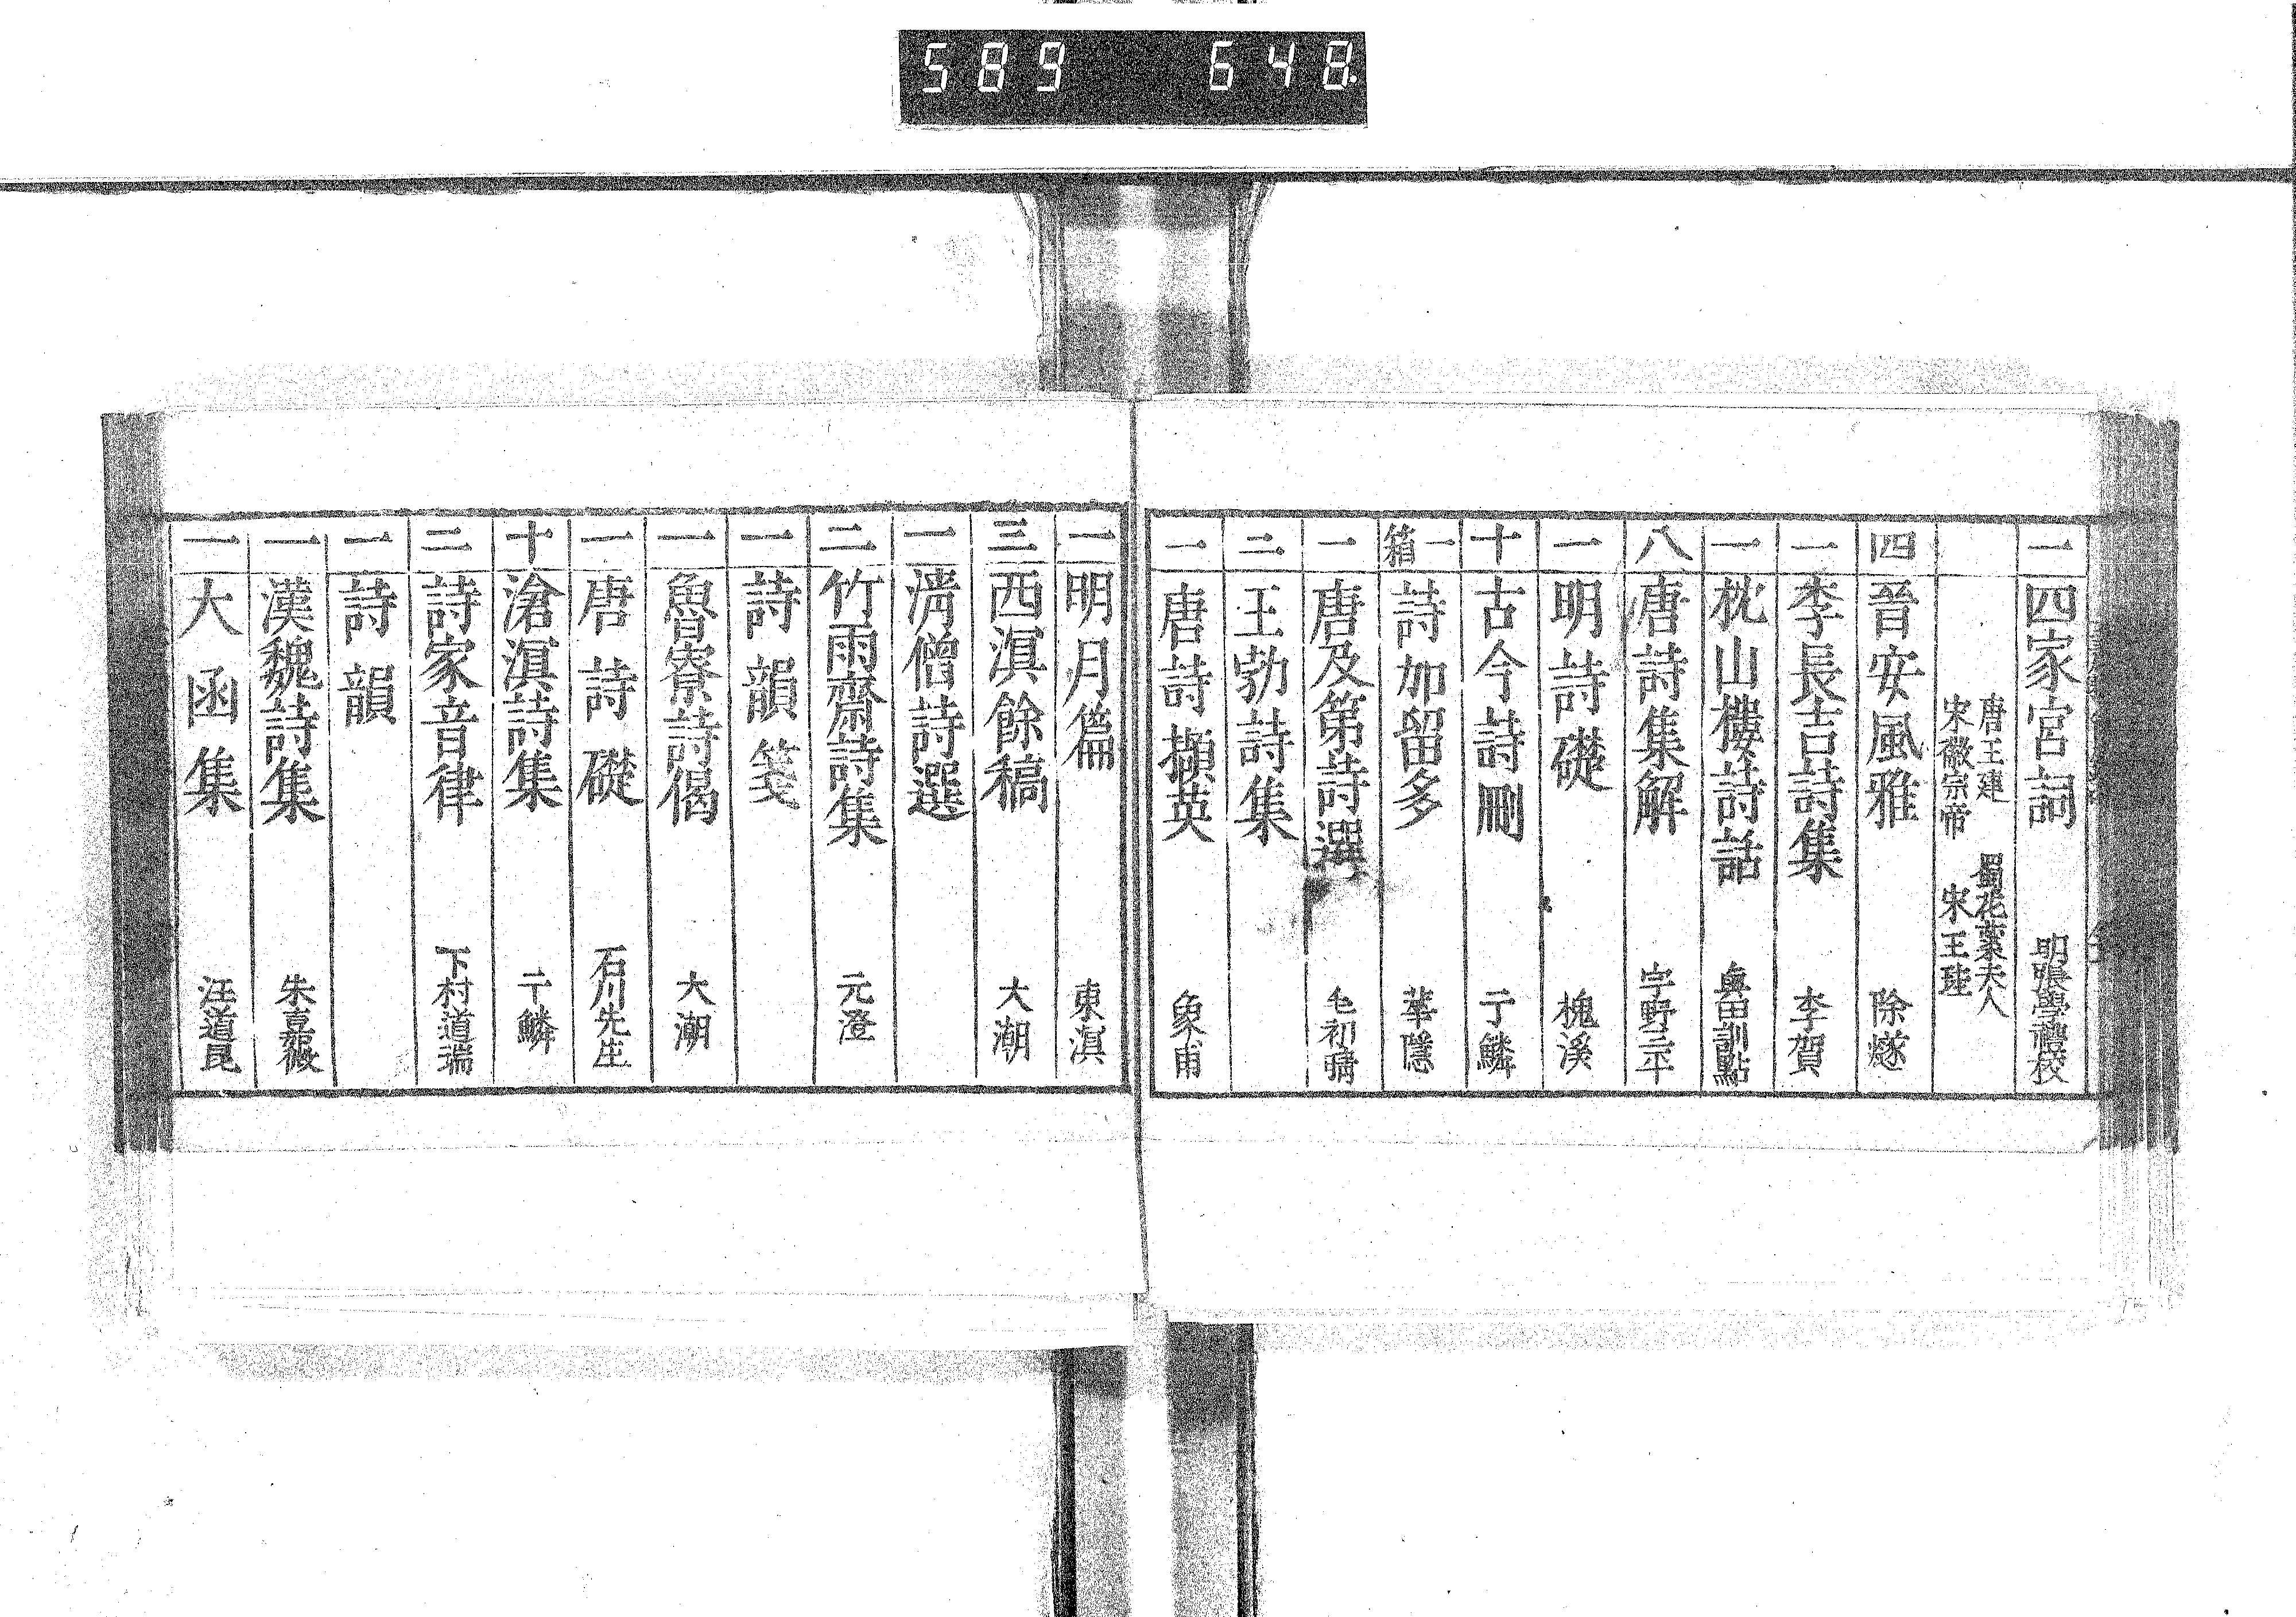 589 648.
二 四家宮詞 明張學禮校
唐王建 蜀花蘂夫人
宋徽宗帝 宋王珪
四 晉安風雅 除𤊟
一 李長吉詩集 李賀
一 枕山樓詩話 奧田訓點
八 唐詩集解 宇野三平
一 明詩礎 槐溪
十 古今詩刪 于鱗
一箱 詩加留多 華隱
一 唐及第詩選 毛初晴
二 王勃詩集
一 唐詩擷英 象甫
一 明月篇 東溟
三 西溟餘稿 大潮
一 清僧詩選
二 竹雨齋詩集 元澄
一 詩韻箋
一 魯寮詩偈 大潮
一 唐詩礎 石川先生
十 滄溟詩集 于鱗
二 詩家音律 下村道瑞
一 詩韻
一 漢魏詩集 朱嘉薇
一 大函集 汪道昆